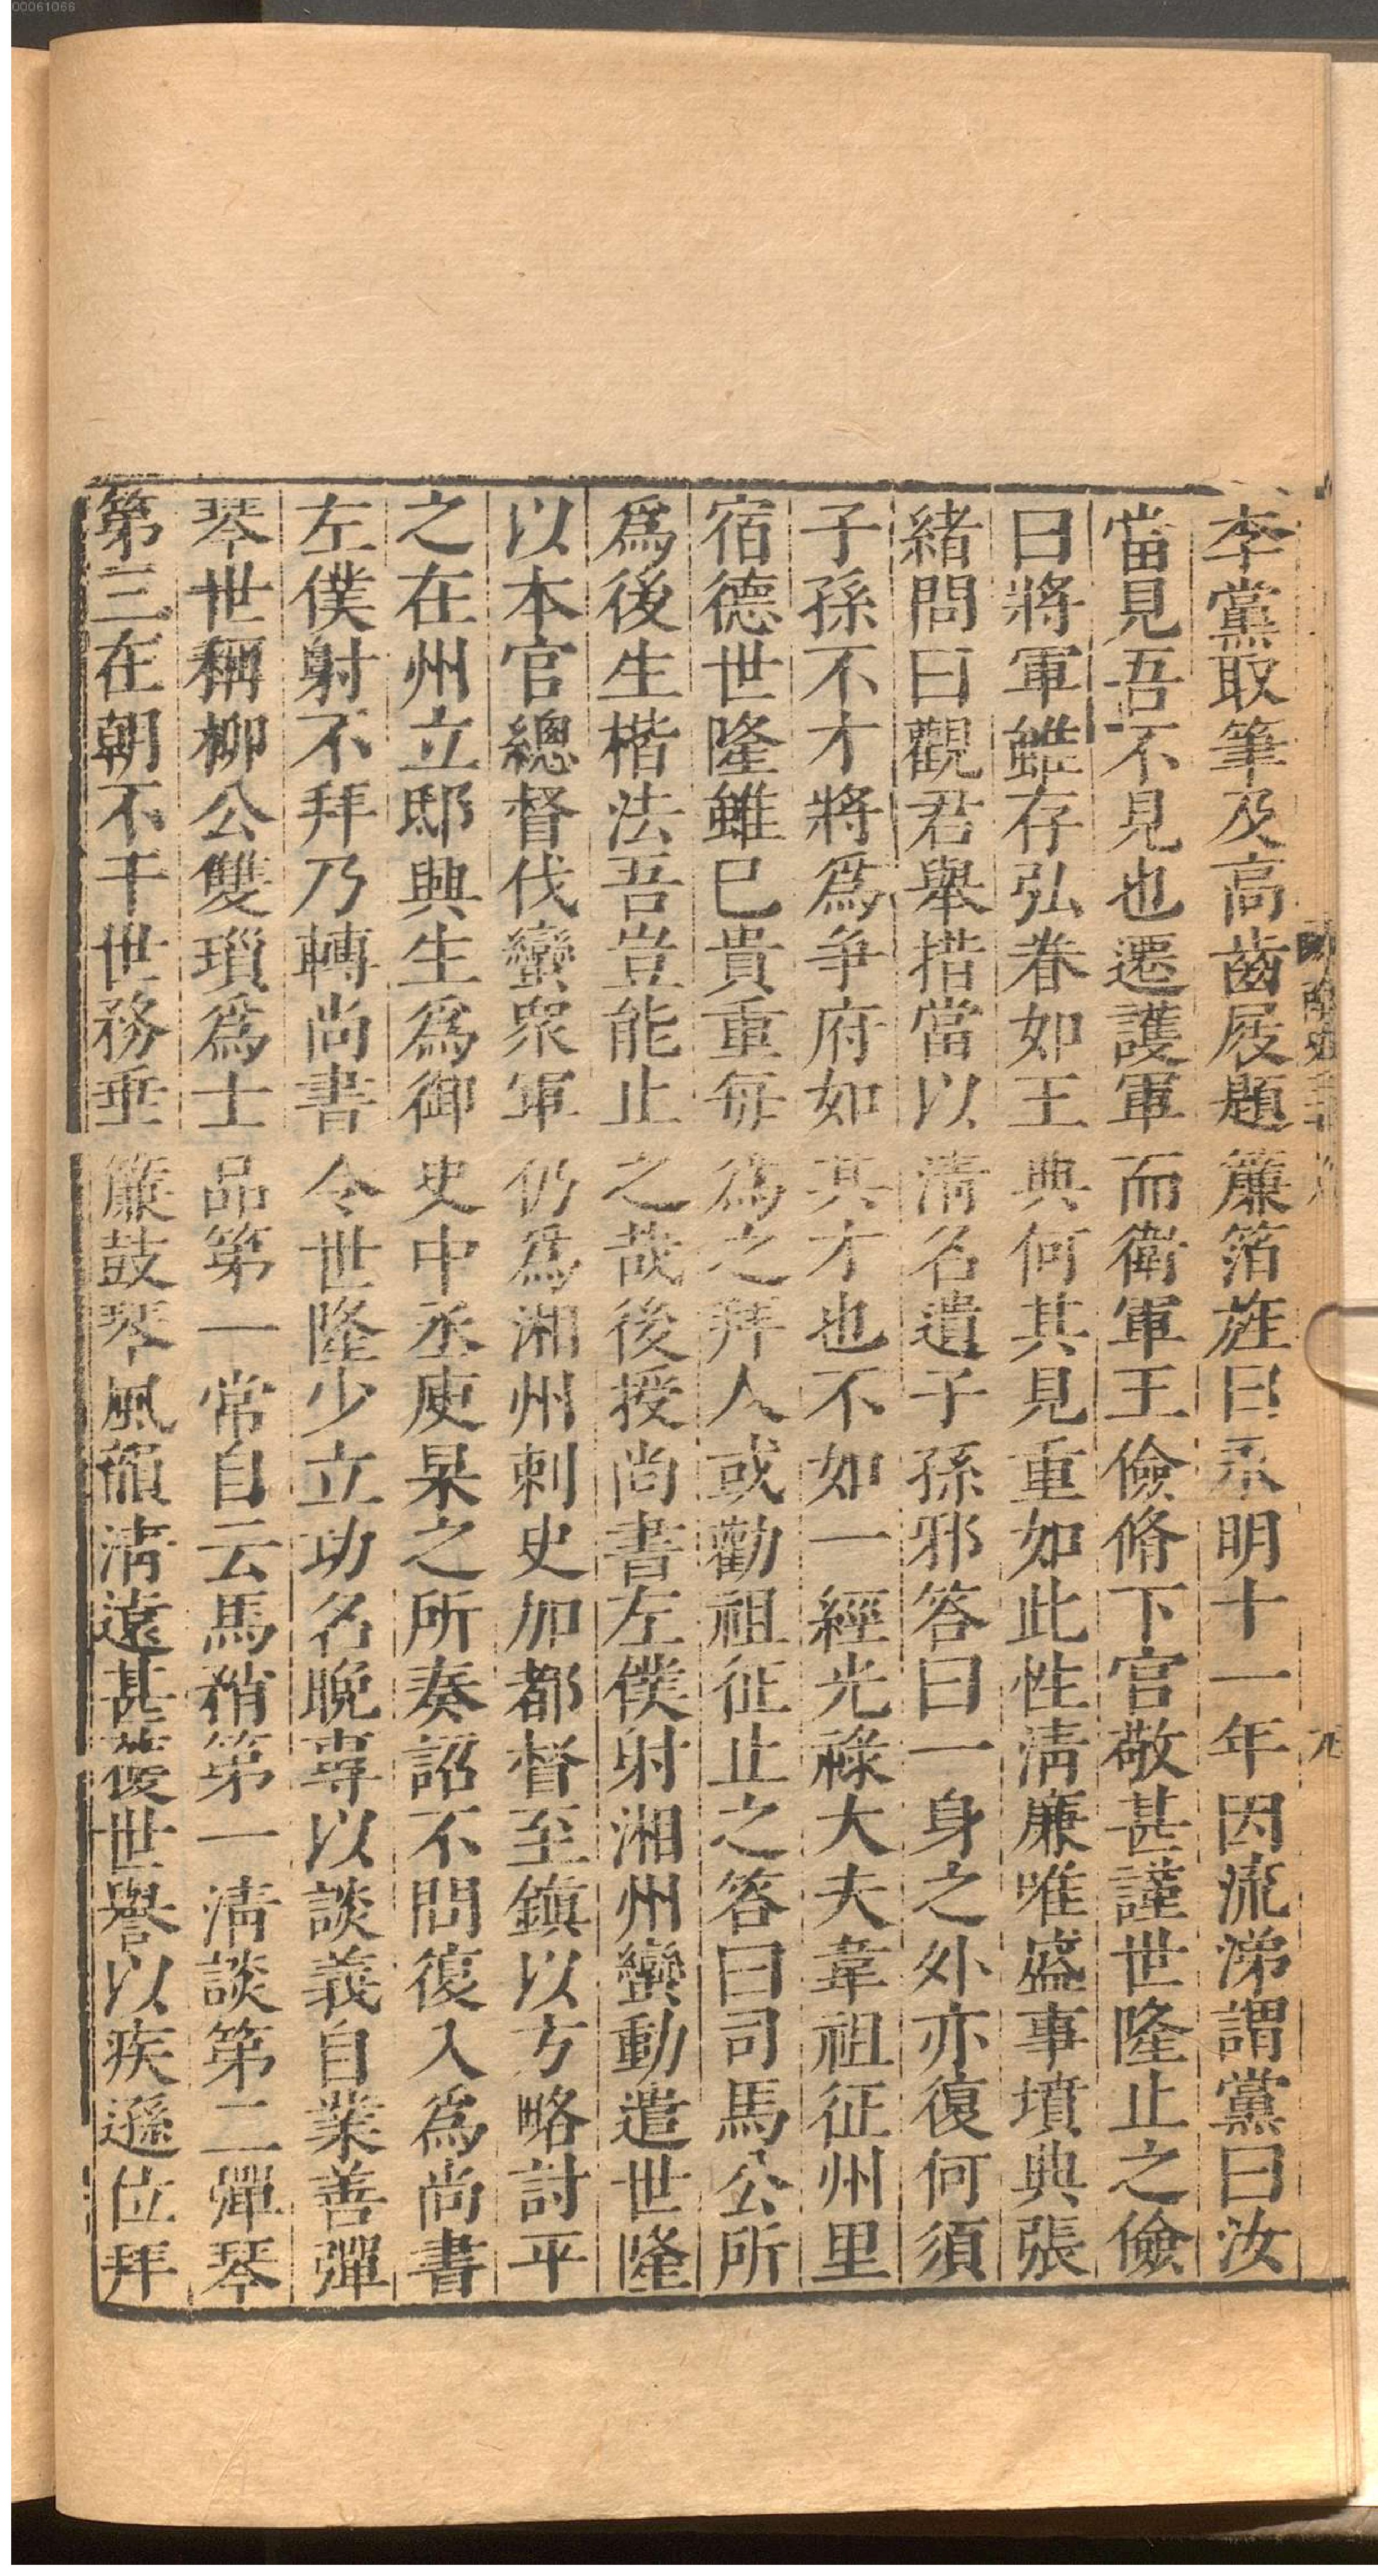 00061066
李黨取筆及高齒屐題簾箔旌曰永明十一年因流涕謂黨曰汝
當見吾不見也遷護軍而衛軍王儉脩下官敬甚謹世隆止之儉
曰將軍雖存弘眷如王典何其見重如此性清廉唯盛事墳典張
緒問曰觀君舉措當以清名遺子孫邪答曰一身之外亦復何須
子孫不才將爲爭府如其才也不如一經光祿大夫韋祖征州里
宿德世隆雖已貴重每爲之拜人或勸祖征止之答曰司馬公所
爲後生楷法吾豈能止之哉後授尚書左僕射湘州蠻動遣世隆
以本官總督伐蠻眾軍仍爲湘州刺史加都督至鎮以方略討平
之在州立邸興生爲御史中丞庾杲之所奏詔不問復入爲尚書
左僕射不拜乃轉尚書令世隆少立功名晚專以談義自業善彈
琴世稱柳公雙瑣爲士品第一常自云馬矟第一清談第二彈琴
第三在朝不干世務垂簾鼓琴風韻清遠甚獲世譽以疾遜位拜